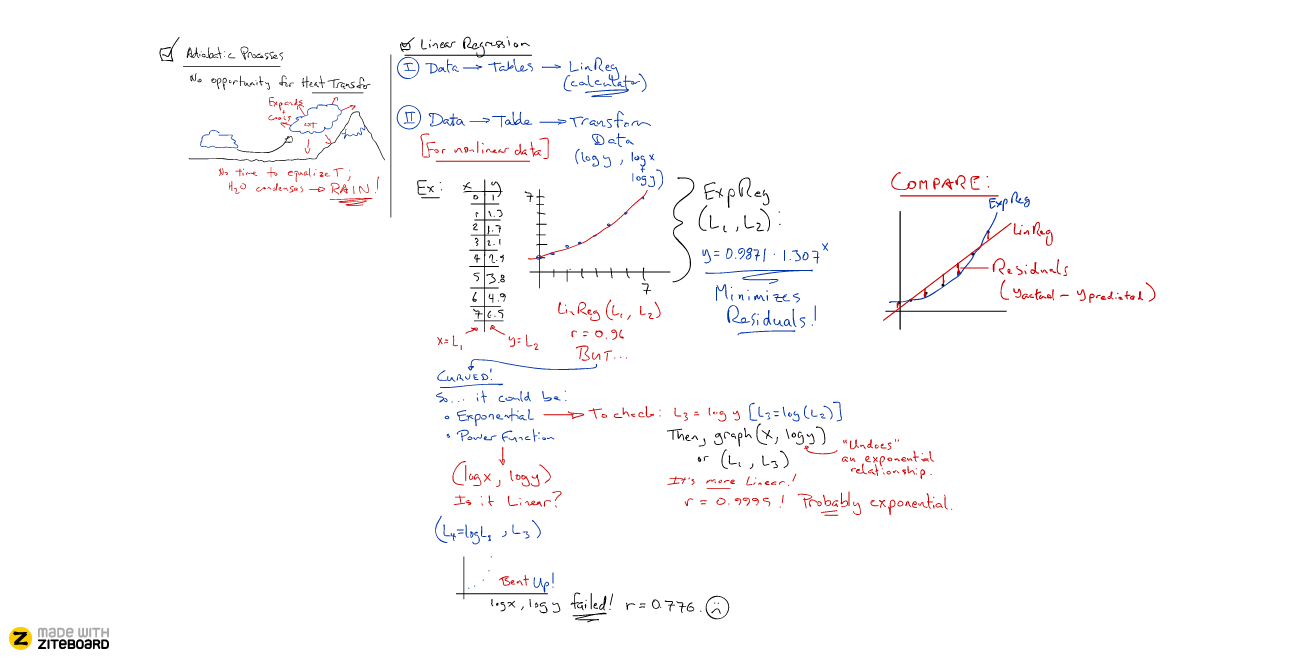 Adiabatic Processes
No opportunity for Heat Transfer
Expands
+
Cools
HOT
No time to equalize T;
H2O condenses → RAIN!
Linear Regression
I Data → Tables → LinReg
(calculator)
II Data → Table → Transform
Data
[For nonlinear data]
(log y, log x
+
log y)
Ex:
x y
0 1
1 1.3
2 1.7
3 2.1
4 2.9
5 3.8
6 4.9
7 6.5
x=L1 y=L2
7
7
LinReg (L1, L2)
r = 0.96
BUT...
ExpReg
(L1, L2):
y = 0.9871 · 1.307^x
Minimizes
Residuals!
COMPARE:
ExpReg
LinReg
Residuals
(yactual - ypredicted)
CURVED!
So... it could be:
• Exponential → To check: L3 = log y [L3=log(L2)]
• Power Function
Then, graph (x, log y)
or (L1, L3)
"Undoes"
an exponential
relationship.
It's more Linear!
r = 0.9995! Probably exponential.
(log x, log y)
Is it Linear?
(L4=logL1, L3)
Bent Up!
log x, log y failed! r = 0.776.
Z MADE WITH
ZITEBOARD